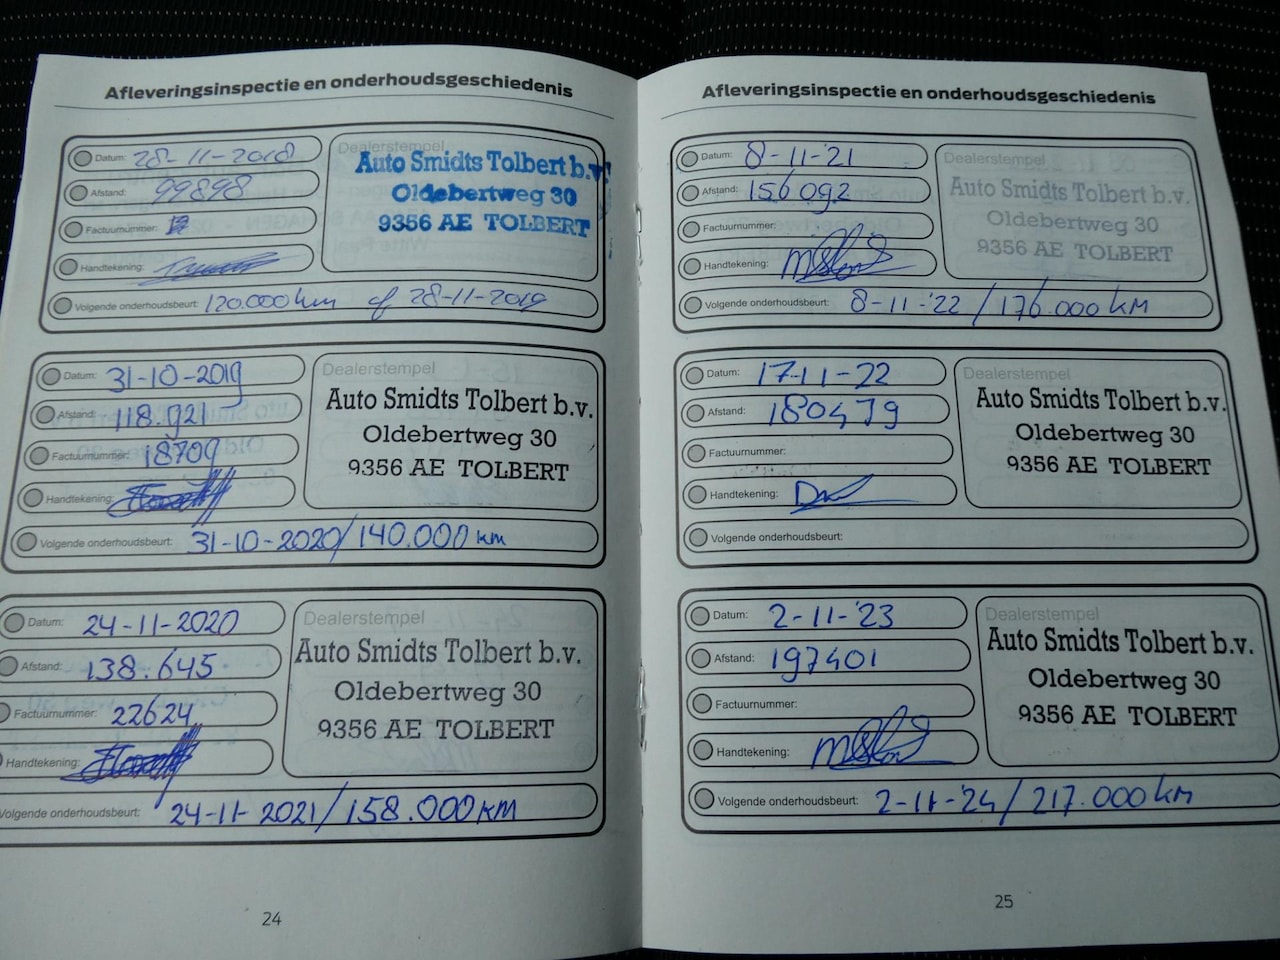 Afleveringsinspectie en onderhoudsgeschiedenis
Datum: 28-11-2018
Afstand: 99898
Factuurnummer:
Handtekening:
Dealerstempel
Auto Smidts Tolbert b.v.
Oldebertweg 30
9356 AE TOLBERT
Volgende onderhoudsbeurt: 120.000 km of 28-11-2019
Datum: 31-10-2019
Afstand: 118.921
Factuurnummer: 18709
Handtekening:
Dealerstempel
Auto Smidts Tolbert b.v.
Oldebertweg 30
9356 AE TOLBERT
Volgende onderhoudsbeurt: 31-10-2020/140.000 km
Datum: 24-11-2020
Afstand: 138.645
Factuurnummer: 22624
Handtekening:
Dealerstempel
Auto Smidts Tolbert b.v.
Oldebertweg 30
9356 AE TOLBERT
Volgende onderhoudsbeurt: 24-11-2021/158.000 KM
24
Afleveringsinspectie en onderhoudsgeschiedenis
Datum: 8-11-'21
Afstand: 156092
Factuurnummer:
Handtekening:
Dealerstempel
Auto Smidts Tolbert b.v.
Oldebertweg 30
9356 AE TOLBERT
Volgende onderhoudsbeurt: 8-11-'22 / 176.000 KM
Datum: 17-11-22
Afstand: 180479
Factuurnummer:
Handtekening:
Dealerstempel
Auto Smidts Tolbert b.v.
Oldebertweg 30
9356 AE TOLBERT
Volgende onderhoudsbeurt:
Datum: 2-11-'23
Afstand: 197401
Factuurnummer:
Handtekening:
Dealerstempel
Auto Smidts Tolbert b.v.
Oldebertweg 30
9356 AE TOLBERT
Volgende onderhoudsbeurt: 2-11-'24 / 217.000 km
25